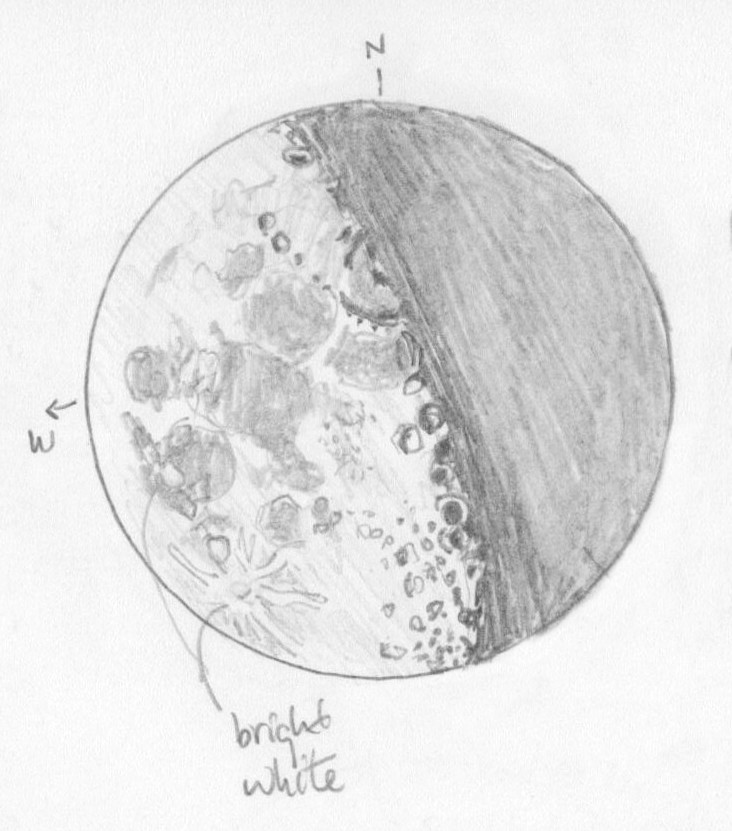 N
W
bright
white